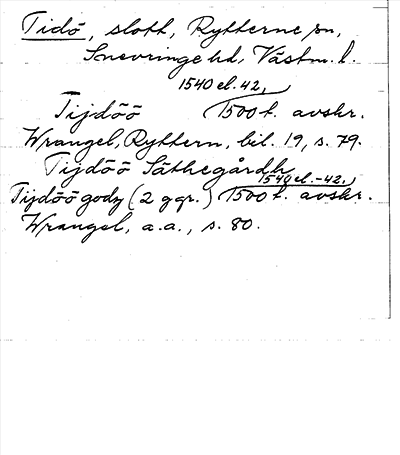 Tidö, slott, Rytterne sn,
Snevringe hd, Västm. l.
1540 el. 42,
Tijdöö (1500 t. avskr.
Wrangel, Ryttern, bil. 19, s. 79.
Tijdöö Säthegårdh
1540 el. -42,
Tijdöö godz (2 ggr.) 1500 t. avskr.
Wrangel, a.a., s. 80.